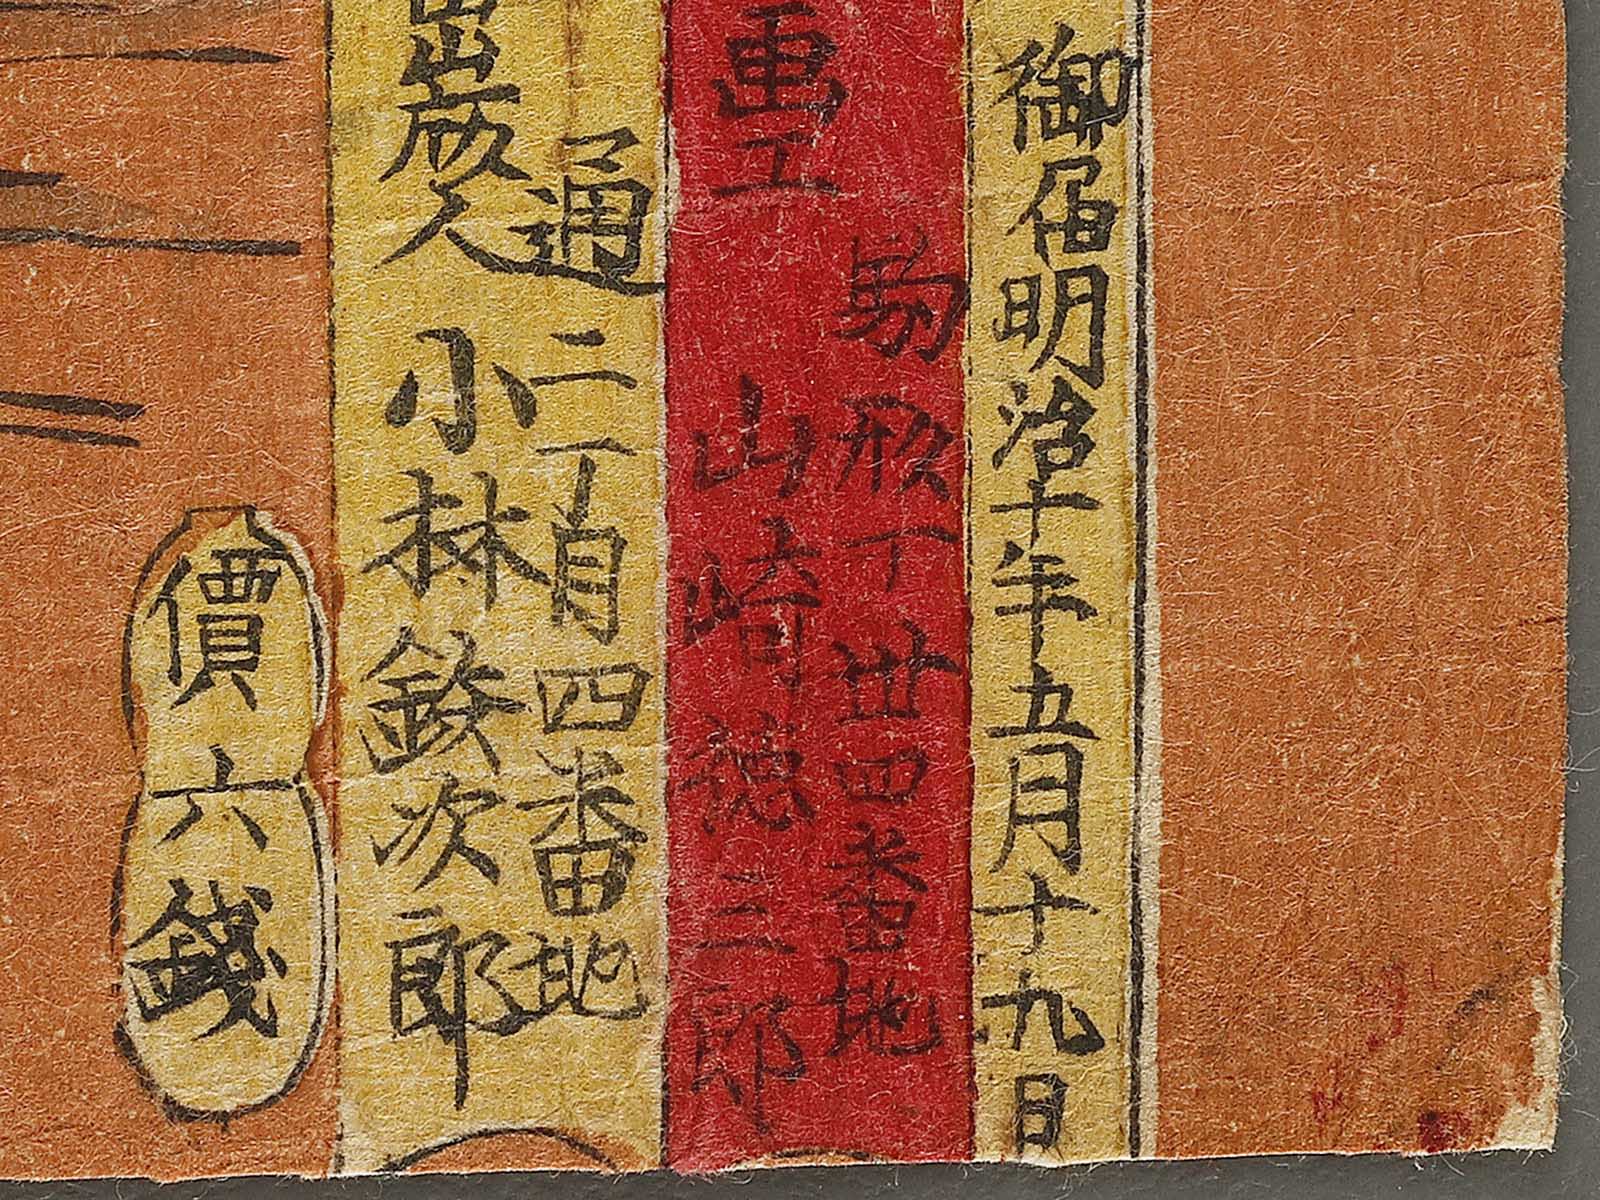 御届明治十年五月十九日
駒形丁丗四番地
画工 山崎徳三郎
通二丁目四番地
出版人 小林鉄次郎
價六錢